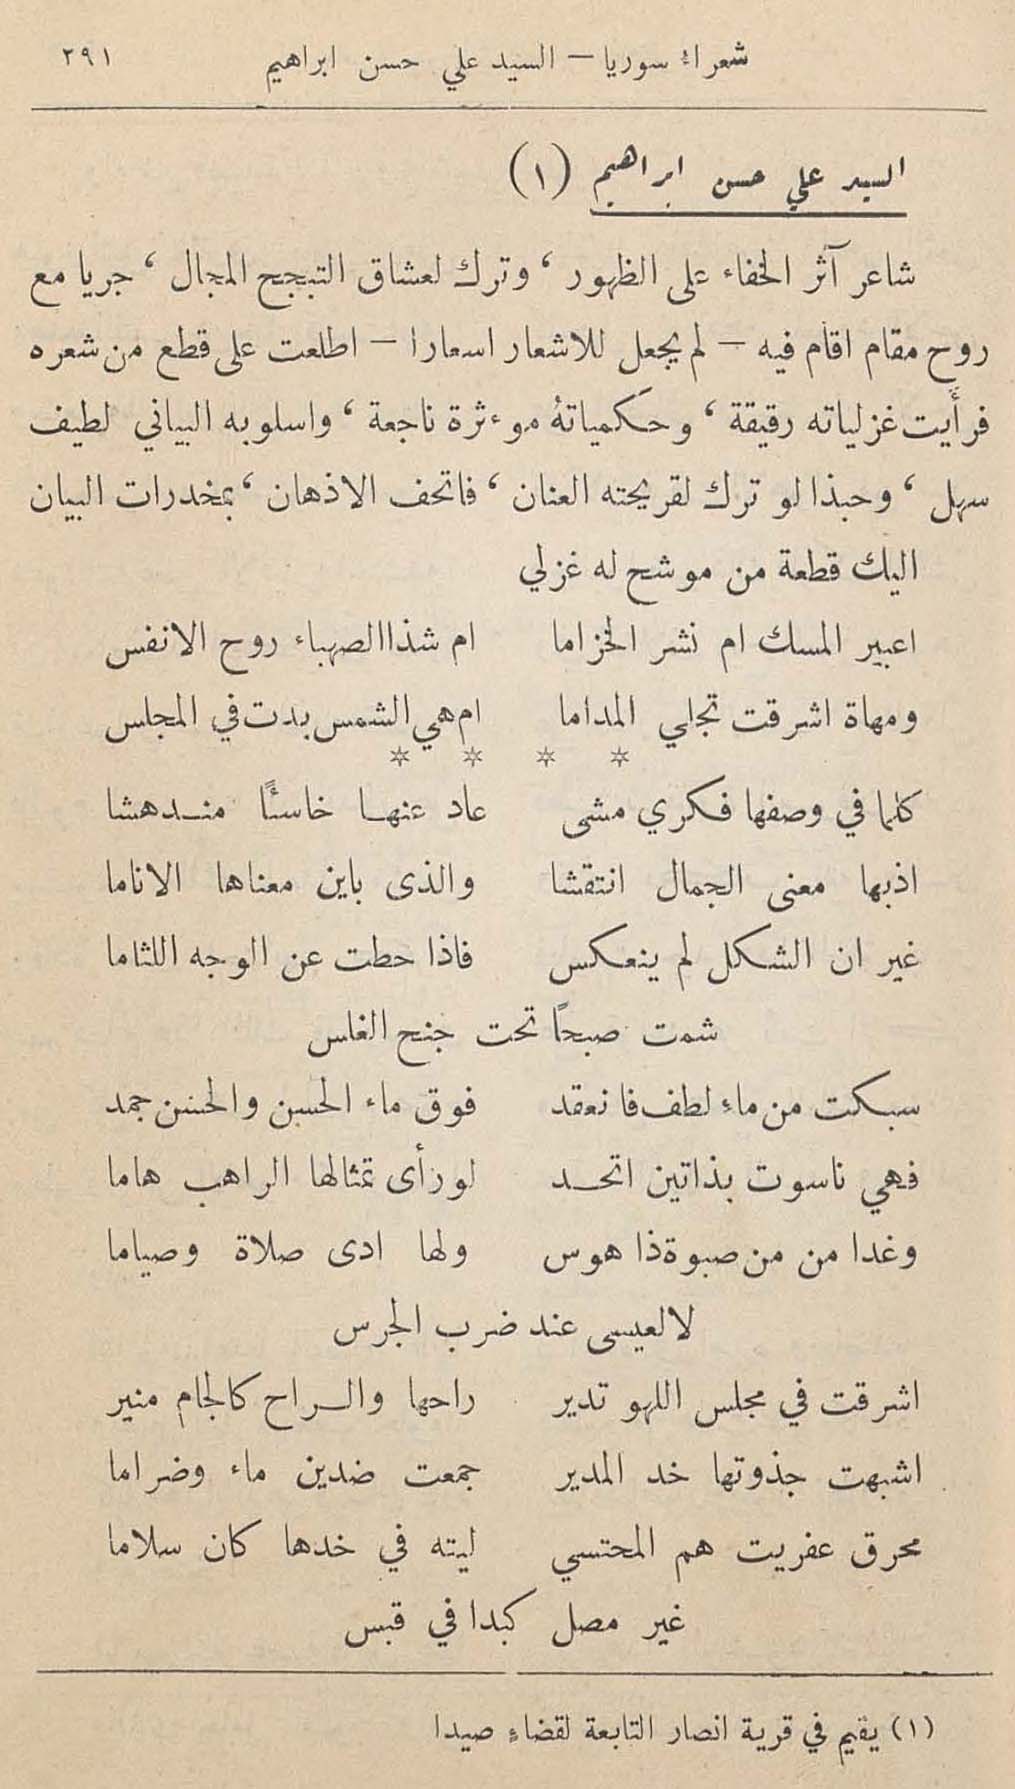 شعراء سوريا — السيد علي حسن ابراهيم ٢٩١
السيد علي حسن ابراهيم (١)
شاعر آثر الخفاء على الظهور ، وترك لعشاق التبجح المجال ، جريا مع
روح مقام اقام فيه — لم يجعل للاشعار اسعارا — اطلعت على قطع من شعره
فرأيت غزلياته رقيقة ، وحكمياتهُ موءثرة ناجعة ، واسلوبه البياني لطيف
سهل ، وحبذا لو ترك لقريحته العنان ، فاتحف الاذهان ، بمخدرات البيان
اليك قطعة من موشح له غزلي
اعبير المسك ام نشر الخزاما ام شذا الصهباء روح الانفس
ومهاة اشرقت تجلي المداما ام هي الشمس بدت في المجلس
* * * *
كلما في وصفها فكري مشى عاد عنها خاسئًا مندهشا
اذبها معنى الجمال انتقشا والذى باين معناها الاناما
غير ان الشكل لم ينعكس فاذا حطت عن الوجه اللثاما
شمت صبحًا تحت جنح الغلس
سبكت من ماء لطف فانعقد فوق ماء الحسن والحسن جمد
فهي ناسوت بذاتين اتحد لو رأى تمثالها الراهب هاما
وغدا من من صبوة ذا هوس ولها ادى صلاة وصياما
لا لعيسى عند ضرب الجرس
اشرقت في مجلس اللهو تدير راحها والراح كالجام منير
اشبهت جذوتها خد المدير جمعت ضدين ماء وضراما
محرق عفريت هم المحتسي ليته في خدها كان سلاما
غير مصل كبدا في قبس
(١) يقيم في قرية انصار التابعة لقضاء صيدا